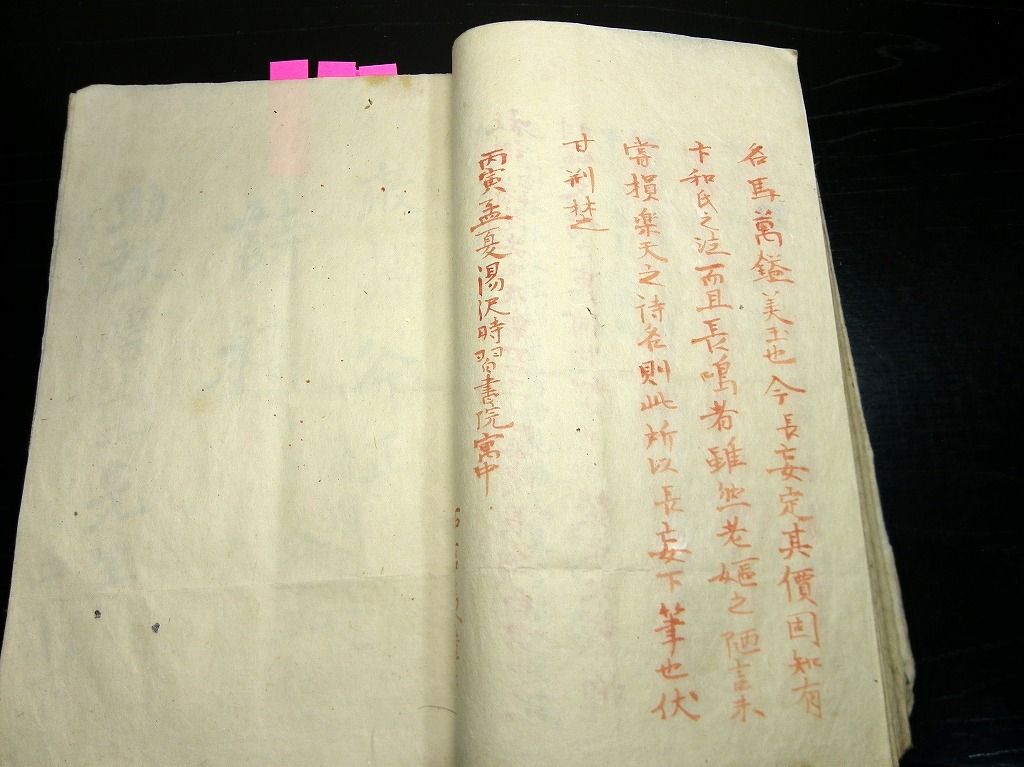 名馬萬鎰美玉也今長妄定其價固知有
卞和氏之泣而且長鳴者雖然老嫗之陋言未
嘗損楽天之詩名則此所以長妄下筆也伏
甘荆楚
丙寅孟夏湯沢時習書院寓中